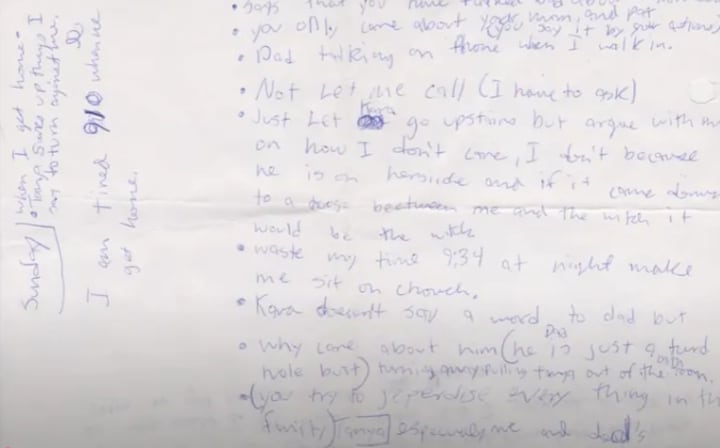 • says that you have talked
• you only care about your mom, and pat
(you say it by your actions)
• Dad talking on phone when I walk in.
• Not Let me call (I have to ask)
• Just Let Kara go upstairs but argue with m
on how I don't care, I don't because
he is on her side and if it came down
to a between me and the witch it
would be the witch
• waste my time 9:34 at night make
me sit on chouch.
• Kara doesn't say a word to dad but
• why care about him (he is just a turd
Dad
hole butt) turning pulling things out of the room.
• (you try to jeperdise every thing in th
family) Tanya especialy me and dad's
Sunday
when I get home.
• Tanya Saves up things I
say to turn against me.
I am tired 9/10 when we
get home.